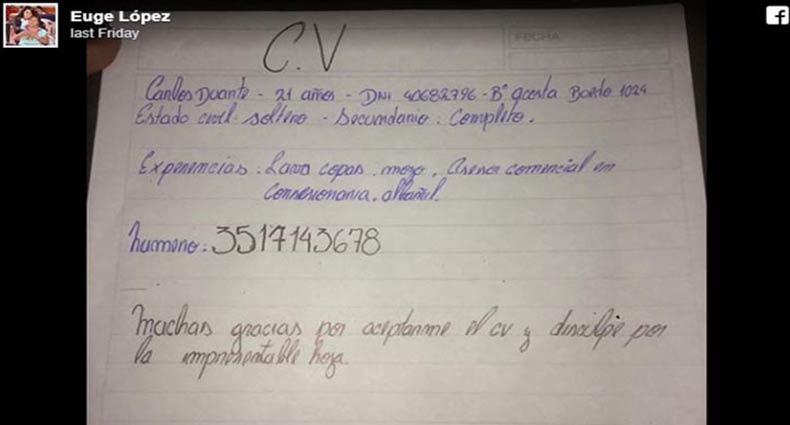 Euge López
last Friday
C.V
FECHA
Carlos Duarte - 21 años - DNI 40682796 - Bº acosta Bordo 1024
Estado civil soltero - Secundario: Completo.
Experiencias: Lava copas. mozo, Asesor comercial en
Consesionaria. albañil.
humero: 3517143678
Muchas gracias por aceptarme el cv y disculpe por
la impresentable hoja.